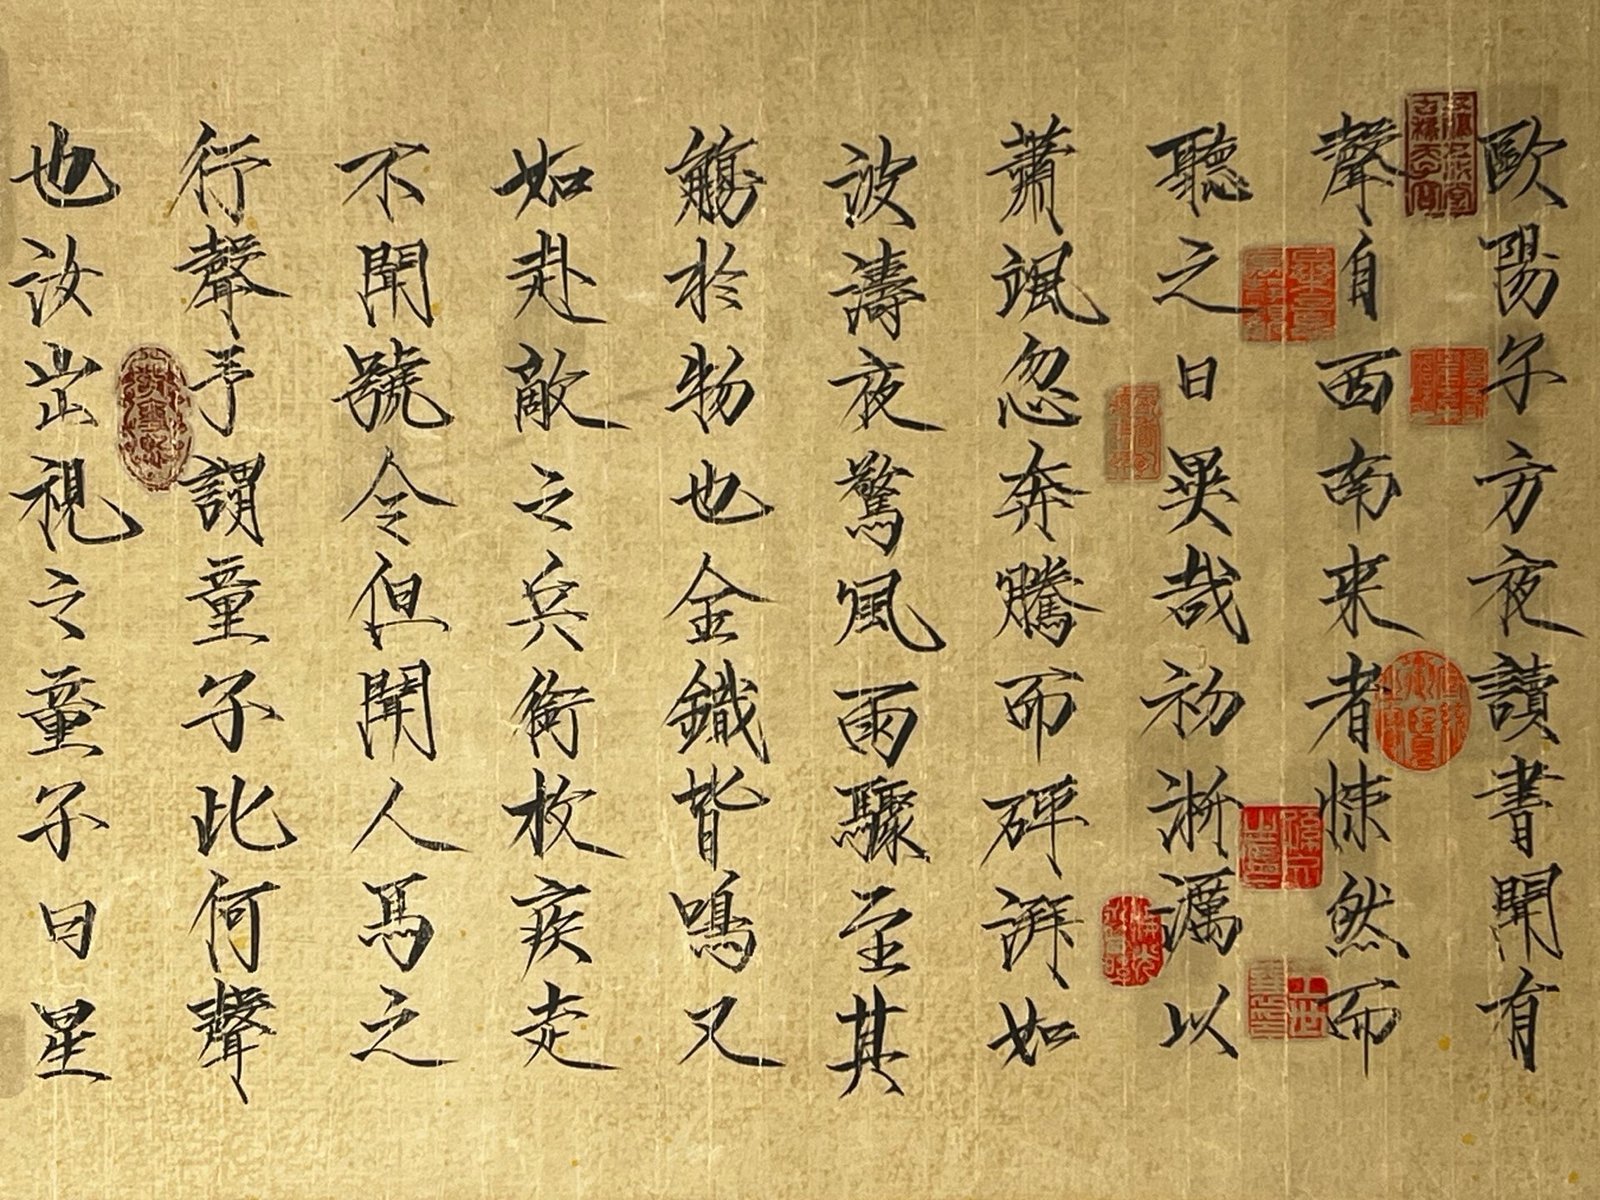 歐陽子方夜讀書聞有
聲自西南来者悚然而
聽之曰異哉初淅瀝以
蕭颯忽奔騰而砰湃如
波濤夜驚風雨驟至其
觸於物也金鐵皆鳴又
如赴敵之兵銜枚疾走
不聞號令但聞人馬之
行聲予謂童子此何聲
也汝出視之童子曰星